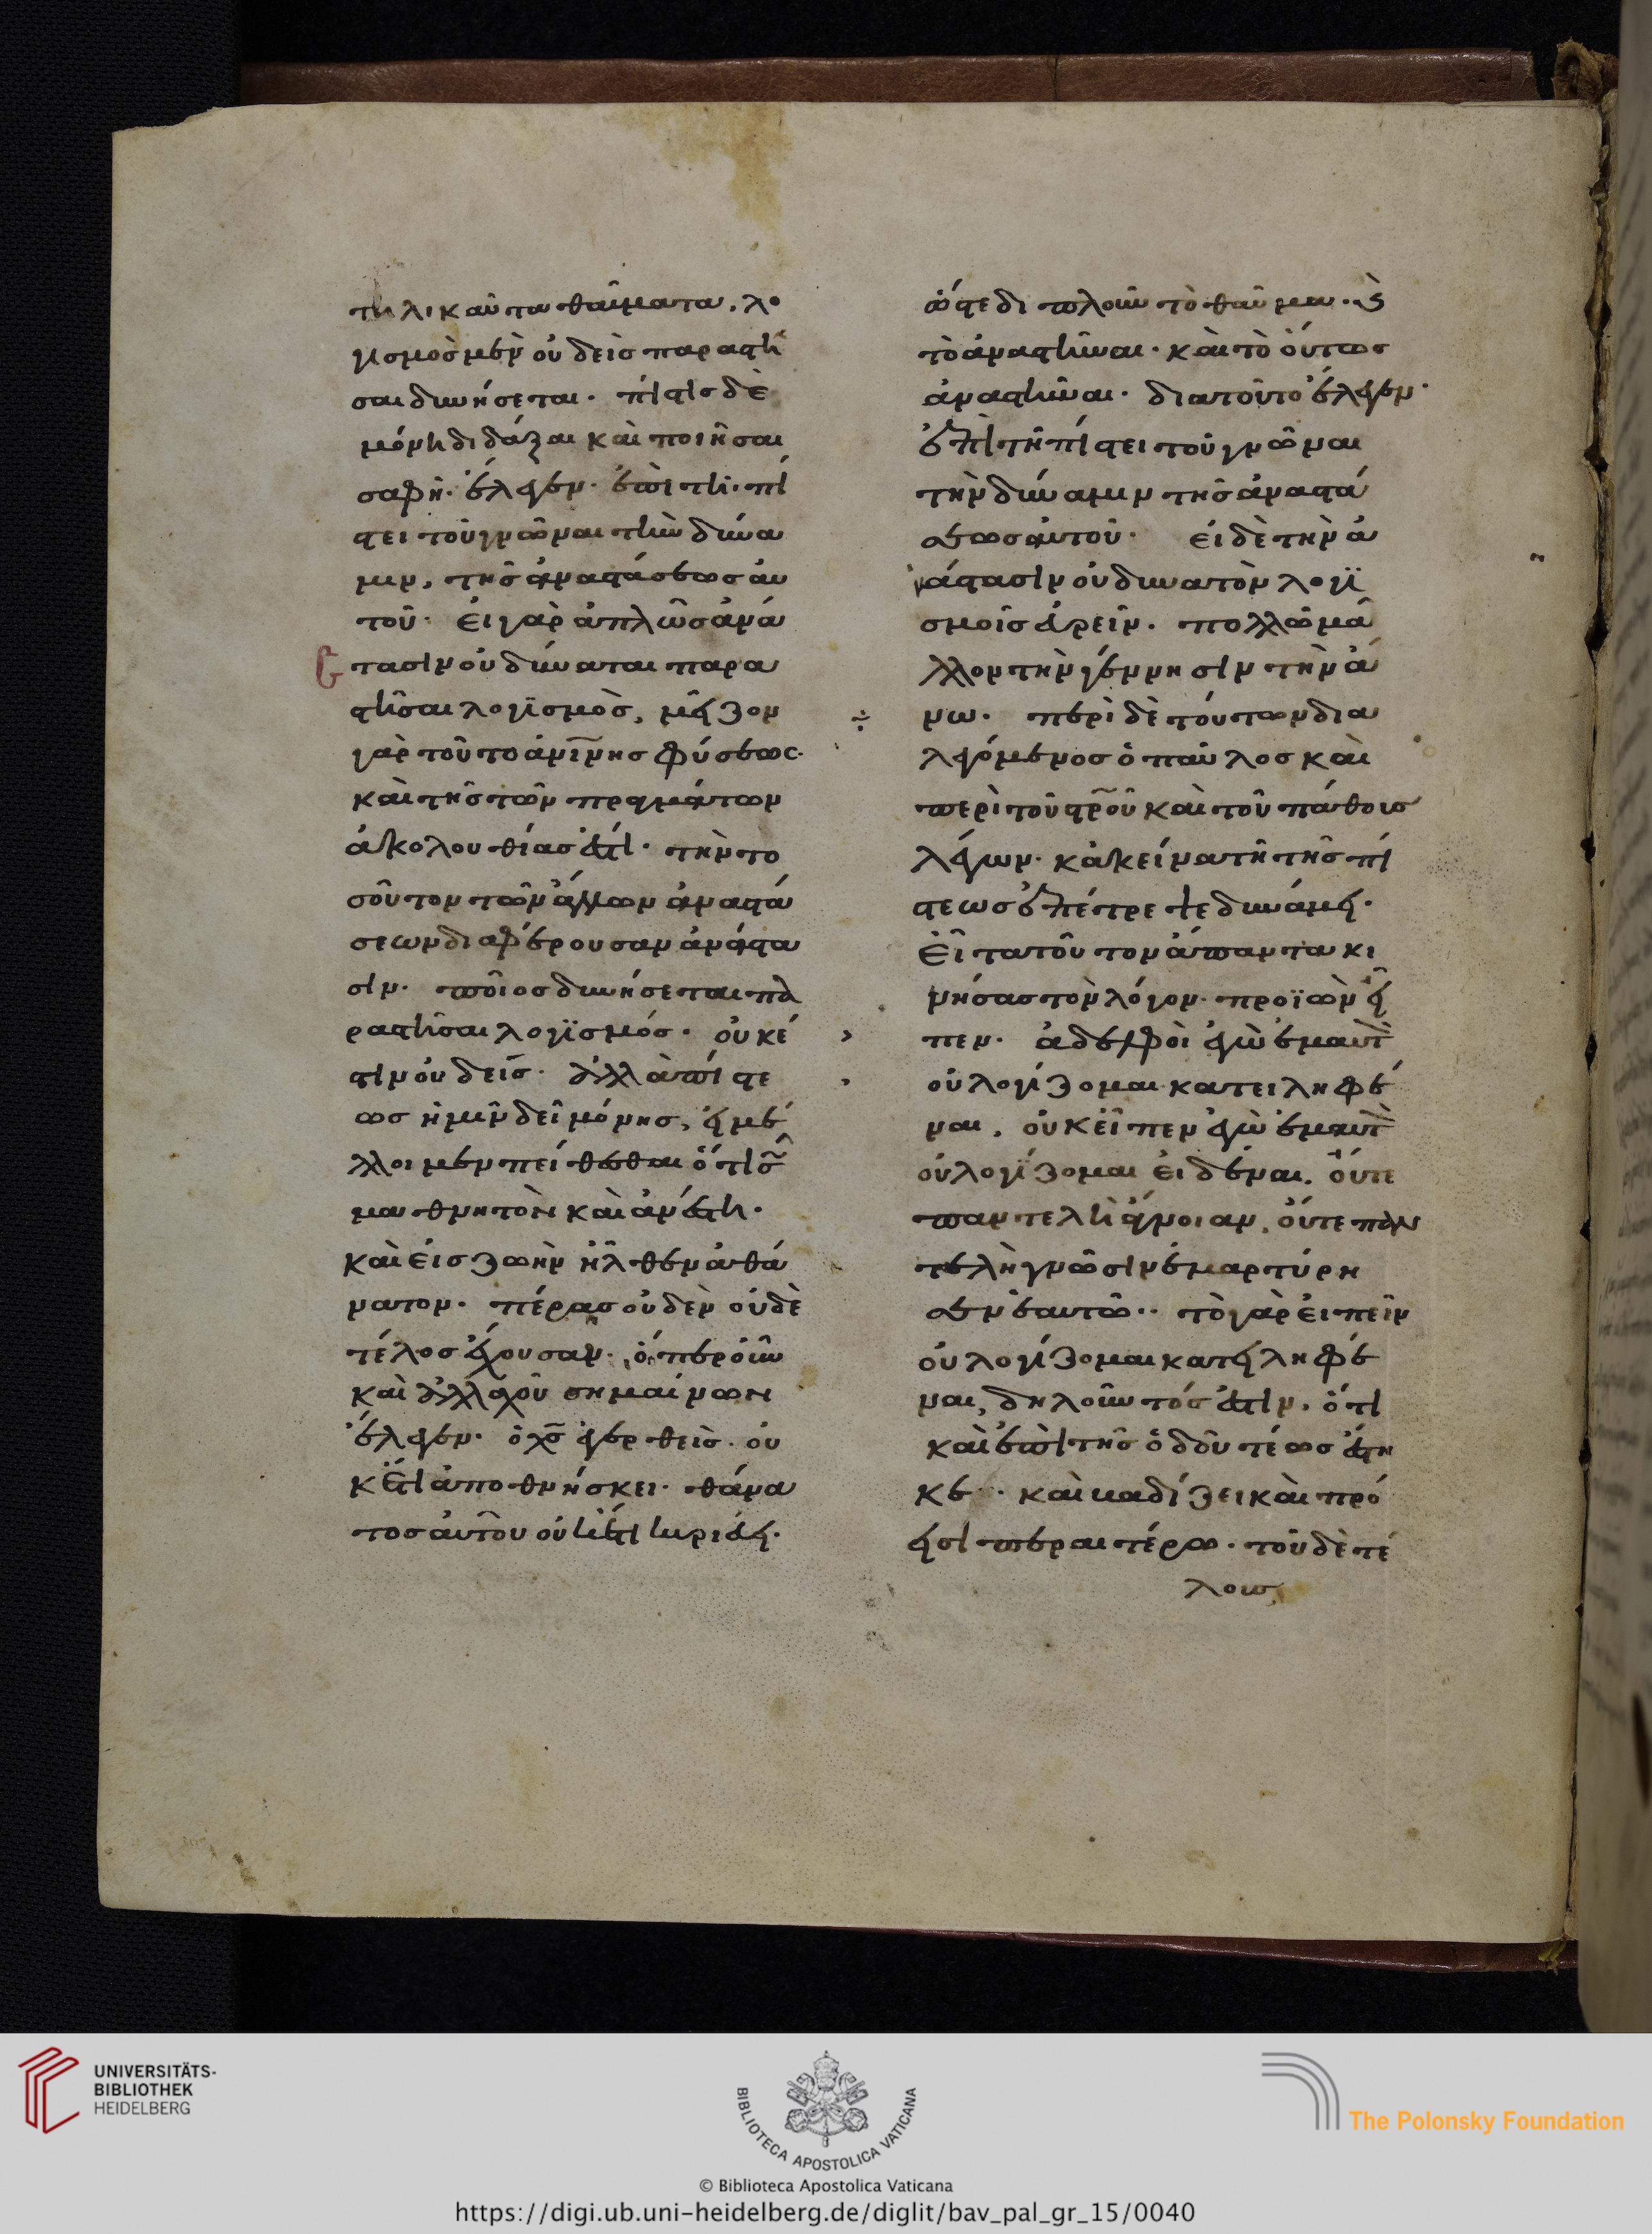 τηλικαῦτα θαύματα, λο
γισμὸς μὲν οὐδεὶς παραστῆ
σαι δυνήσεται· πίστις δὲ
μόνη διδάξαι καὶ ποιῆσαι
σαφῆ· ἔλεγεν· ἐπὶ τῆ πί
στει τοῦ γνῶναι τὴν δύνα
μιν, τῆς ἀναστάσεως αὐ
τοῦ· εἰ γὰρ ἁπλῶς ἀνά
στασιν οὐ δύναται παρα
στῆσαι λογϊσμὸς, μεῖζον
γὰρ τοῦτο ἀνῑνης φύσεως·
καὶ τῆς τῶν πραγμάτων
ἀκολουθίας ἐστί· τὴν το
σοῦτον τῶν ἄλλων ἀναστά
σεων διαφέρουσαν ἀνάστα
σιν· ποῖος δυνήσεται πα
ραστῆσαι λογϊσμός· οὐκ ἔ
στιν οὐδεῖς· ἀλλὰ πίστε
ως ἡμῖν δεῖ μόνης, εἰ μέ
λλοιμεν πείθεσθαι ὅτι σῶ
μα θνητὸν καὶ ἀνέστη·
καὶ εἰς ζωὴν ἦλθεν ἀθά
νατον· πέρας οὐδὲν οὐδὲ
τέλος ἔχουσαν· ὅπερ οὖν
καὶ ἀλλαχοῦ σημαίνων
ἔλεγεν· ὁ χς̄ ἐγερθεὶς· οὐ
κέτι ἀποθνήσκει· θάνα
τος αὐτοῦ οὐκέτι κυριεύει·
ὥστε διπλοῦν τὸ θαῦμα· καὶ
τὸ ἀναστῆναι· καὶ τὸ οὕτως
ἀναστῆναι· διατοῦτο ἔλεγεν·
ἐπὶ τῆ πίστει τοῦ γνῶναι
τὴν δύναμιν τῆς ἀναστά
σεως αὐτοῦ· εἰ δὲ τὴν ἀ
νάστασιν οὐ δυνατὸν λογϊ
σμοῖς εὑρεῖν· πολλῶ μᾶ
λλον τὴν γέννησιν τὴν ἄ
νω· περὶ δὲ τούτων δια
λεγόμενος ὁ παῦλος καὶ
περὶ τοῦ στρ̄οῦ καὶ τοῦ πάθους
λέγων· κἀκεῖνα τῆ τῆς πί
στεως ἐπέτρεψε δυνάμει·
Εἶτα τοῦτον ἅπαντα κι
νήσας τὸν λόγον· προϊὼν εἶ
πεν· ἀδελφοὶ ἐγὼ ἐμαυτὸν
οὐ λογίζομαι κατειληφέ
ναι, οὐκ εἶπεν ἐγὼ ἐμαυτὸν
οὐ λογίζομαι εἰδέναι. οὔτε
παντελῆ ἄγνοιαν, οὔτε παν
τελὴ γνῶσιν ἐμαρτύρη
σεν ἑαυτῶ·· τὸ γὰρ εἰπεῖν
οὐ λογίζομαι κατειληφέ
ναι, δηλοῦντός ἐστιν, ὅτι
καὶ ἐπὶ τῆς ὁδοῦ τέως ἔστη
κε· καὶ βαδίζει καὶ πρό
εισι περαιτέρω· τοῦ δὲ τέ
λους
UNIVERSITÄTS-
BIBLIOTHEK
HEIDELBERG
BIBLIOTECA APOSTOLICA VATICANA
The Polonsky Foundation
© Biblioteca Apostolica Vaticana
https://digi.ub.uni-heidelberg.de/diglit/bav_pal_gr_15/0040